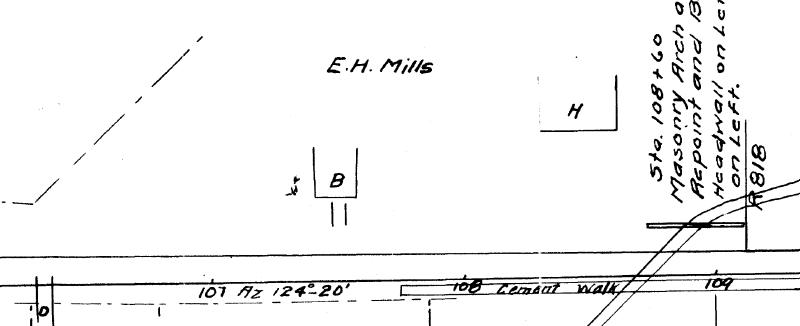 E.H. Mills
H
B
Sta. 108+60
Masonry Arch
Repoint and
Headwall on
on Left.
818
107 Az 124°-20'
108 Cement Walk
109
D